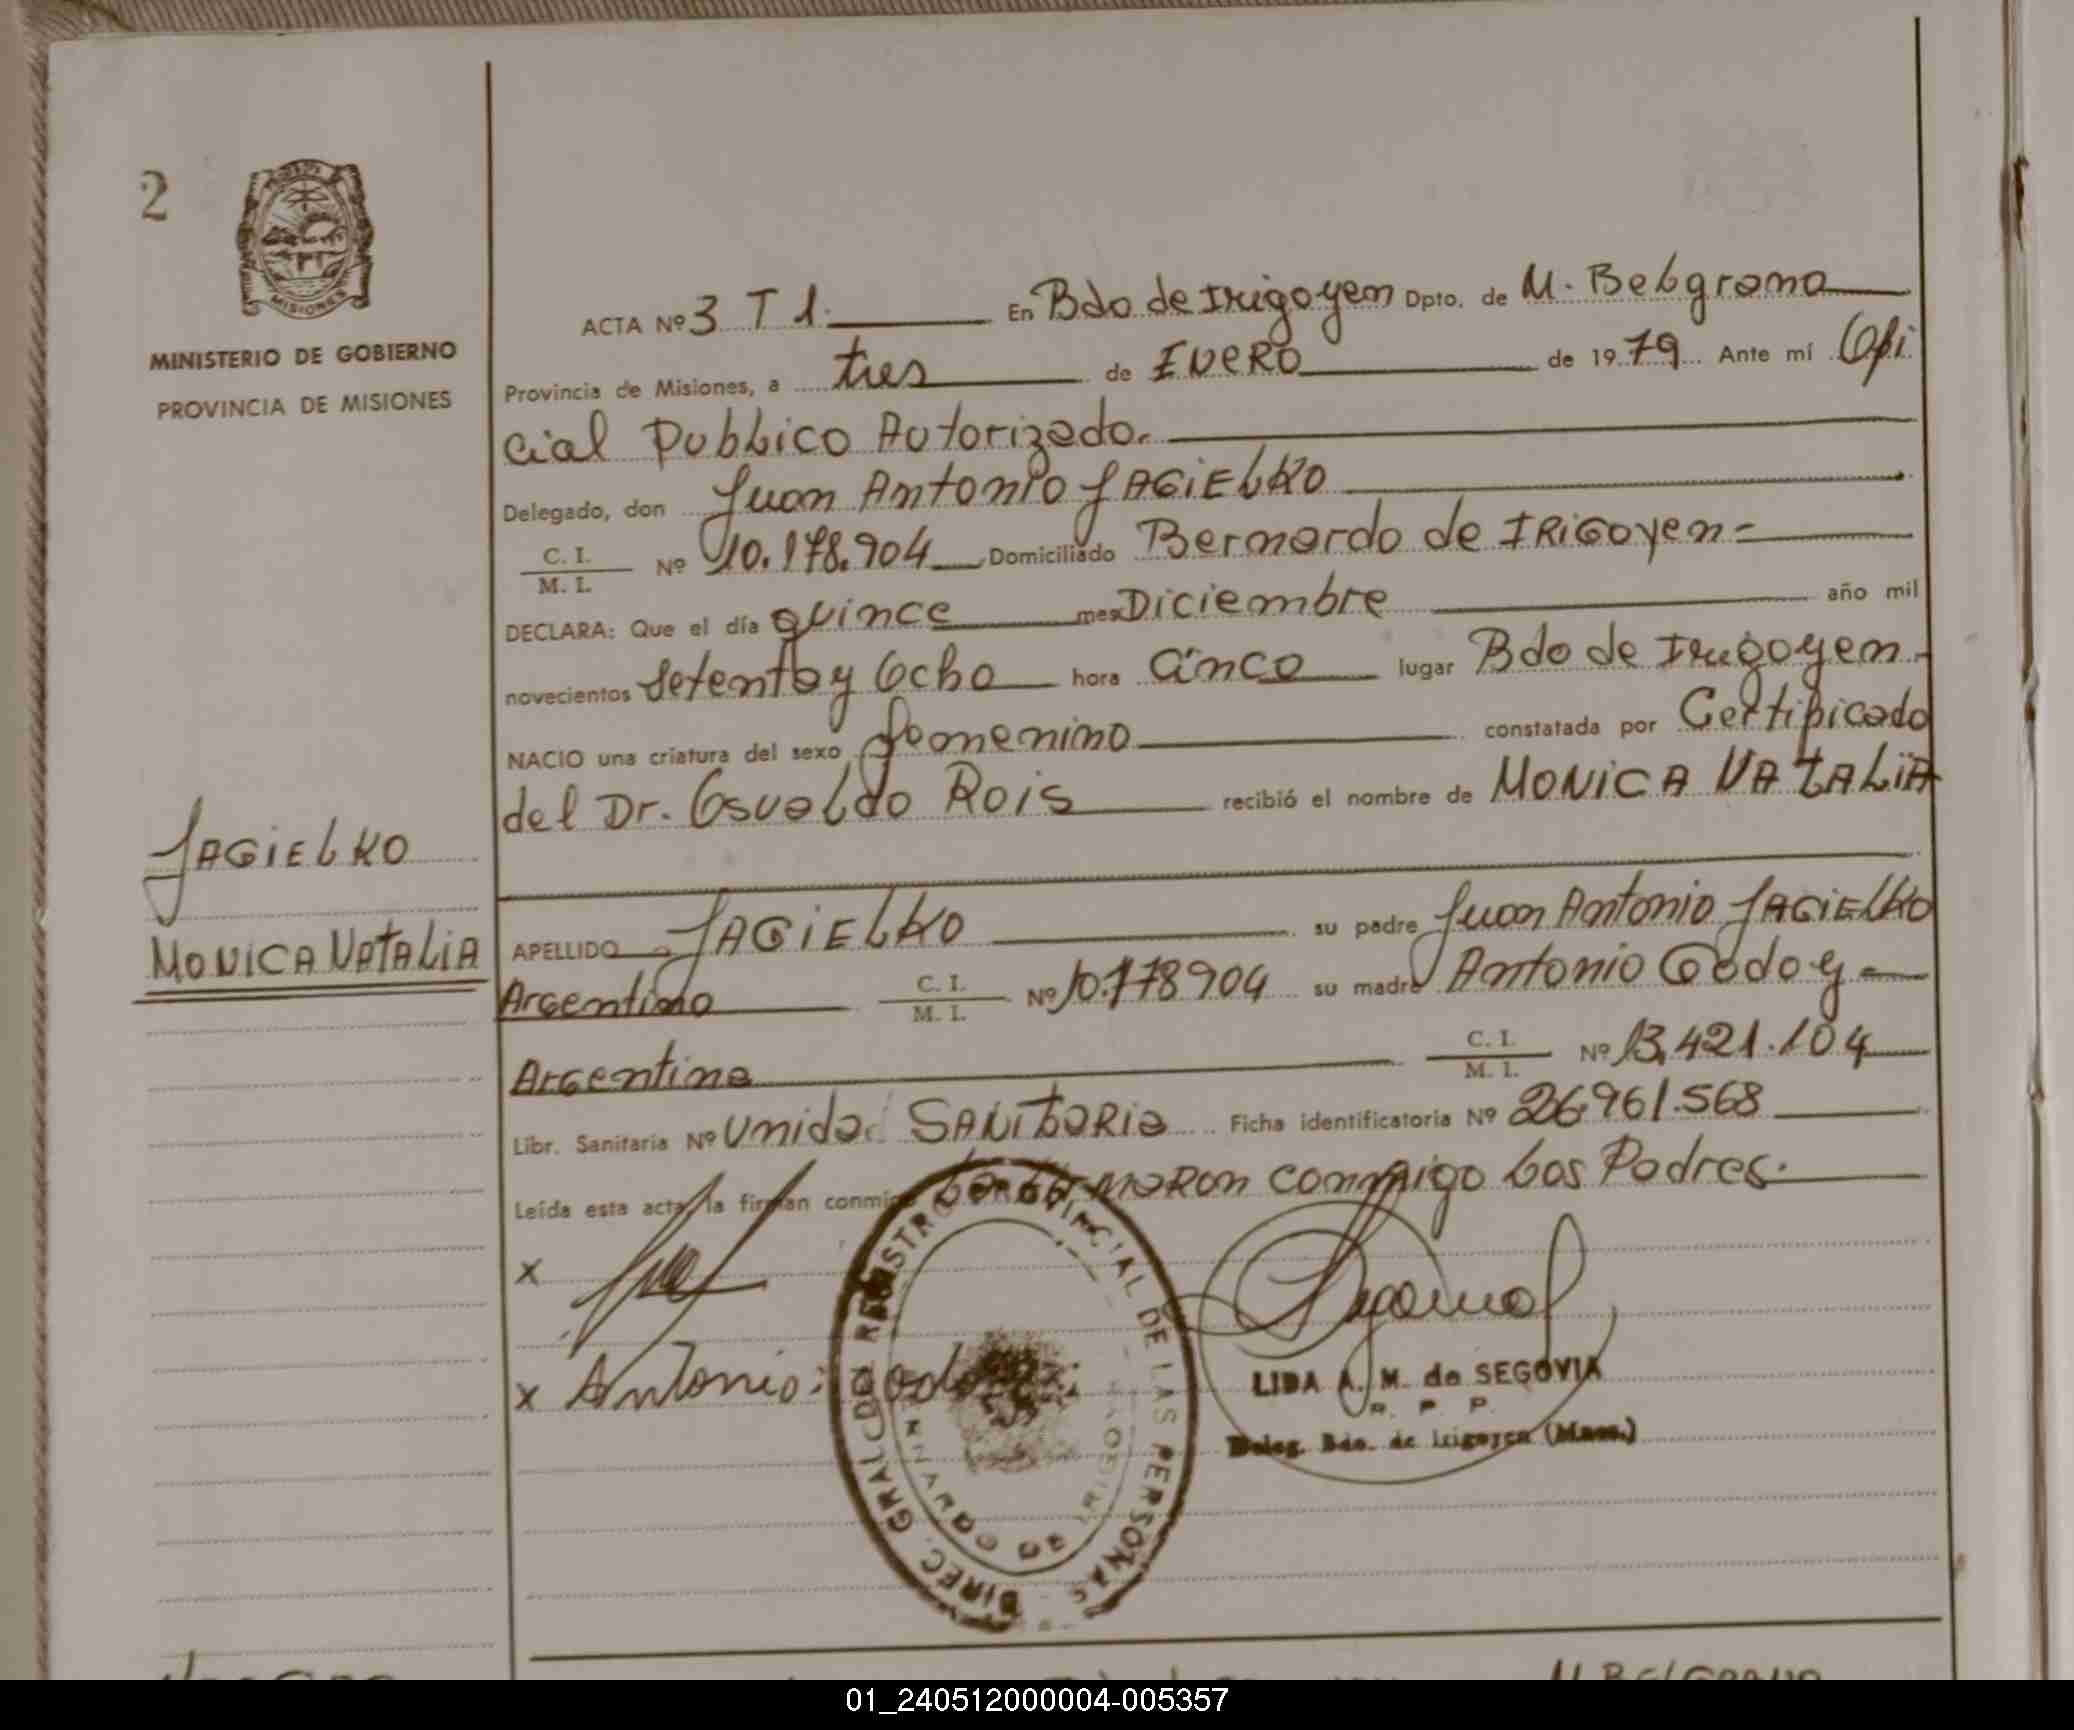 2
MISIONES
MINISTERIO DE GOBIERNO
PROVINCIA DE MISIONES
JAGIELKO
MONICA NATALIA
ACTA Nº 3 T 1. En Bdo de Irigoyen Dpto. de M. Belgrano
Provincia de Misiones, a tres de ENERO de 1979 Ante mí Ofi
cial Publico Autorizado.
Delegado, don Juan Antonio JAGIELKO
C. I. / M. I. Nº 10.178.904 Domiciliado Bernardo de IRIGOYEN =
DECLARA: Que el día quince mes Diciembre año mil
novecientos Setenta y Ocho hora Cinco lugar Bdo de Irigoyen
NACIO una criatura del sexo femenino constatada por Certificado
del Dr. Osvaldo Rois recibió el nombre de MONICA NATALIA
APELLIDO JAGIELKO su padre Juan Antonio JAGIELKO
Argentino C. I. / M. I. Nº 10.178904 su madre Antonia Godoy
Argentina C. I. / M. I. Nº 13.421.104
Libr. Sanitaria Nº Unidad SANITARIA Ficha identificatoria Nº 26.961.568
Leída esta acta, la firman conmigo conmigo Los Padres.
x
x Antonia
DIREC. GRAL. DEL REGISTRO PROVINCIAL DE LAS PERSONAS
IRIGOYEN
LIDA A. M. de SEGOVIA
R. P. P.
Deleg. Bdo. de Irigoyen (Mnes.)
M. BELGRANO
01_240512000004-005357